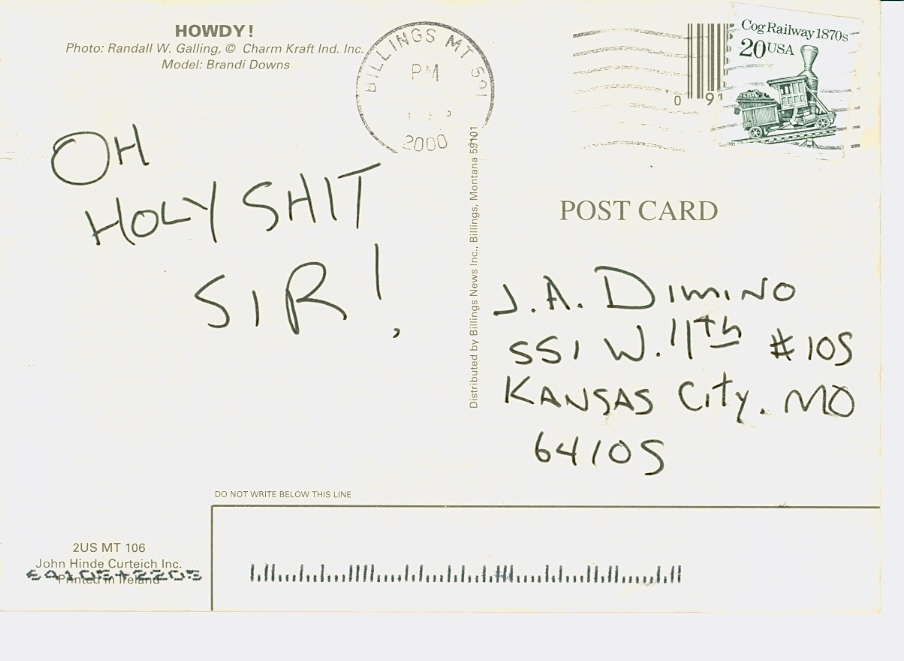 HOWDY!
Photo: Randall W. Galling, © Charm Kraft Ind. Inc.
Model: Brandi Downs
BILLINGS MT 591
PM
2000
Cog Railway 1870s
20 USA
0 91
OH
HOLY SHIT
SIR!
Distributed by Billings News Inc., Billings, Montana 59101
POST CARD
J.A. DIMINO
551 W. 11th #105
KANSAS City, MO
64105
DO NOT WRITE BELOW THIS LINE
2US MT 106
John Hinde Curteich Inc.
Printed in Ireland